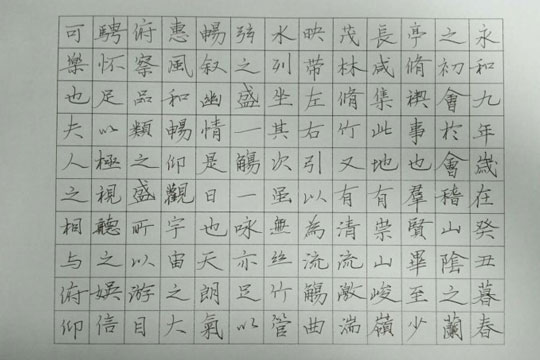 永和九年歲在癸丑暮春
之初會於會稽山陰之蘭
亭脩禊事也羣賢畢至少
長咸集此地有崇山峻嶺
茂林脩竹又有清流激湍
映帶左右引以為流觴曲
水列坐其次虽無丝竹管
弦之盛一觴一咏亦足以
暢叙幽情是日也天朗氣
惠風和暢仰觀宇宙之大
俯察品類之盛所以游目
騁怀足以極視聽之娛信
可樂也夫人之相与俯仰